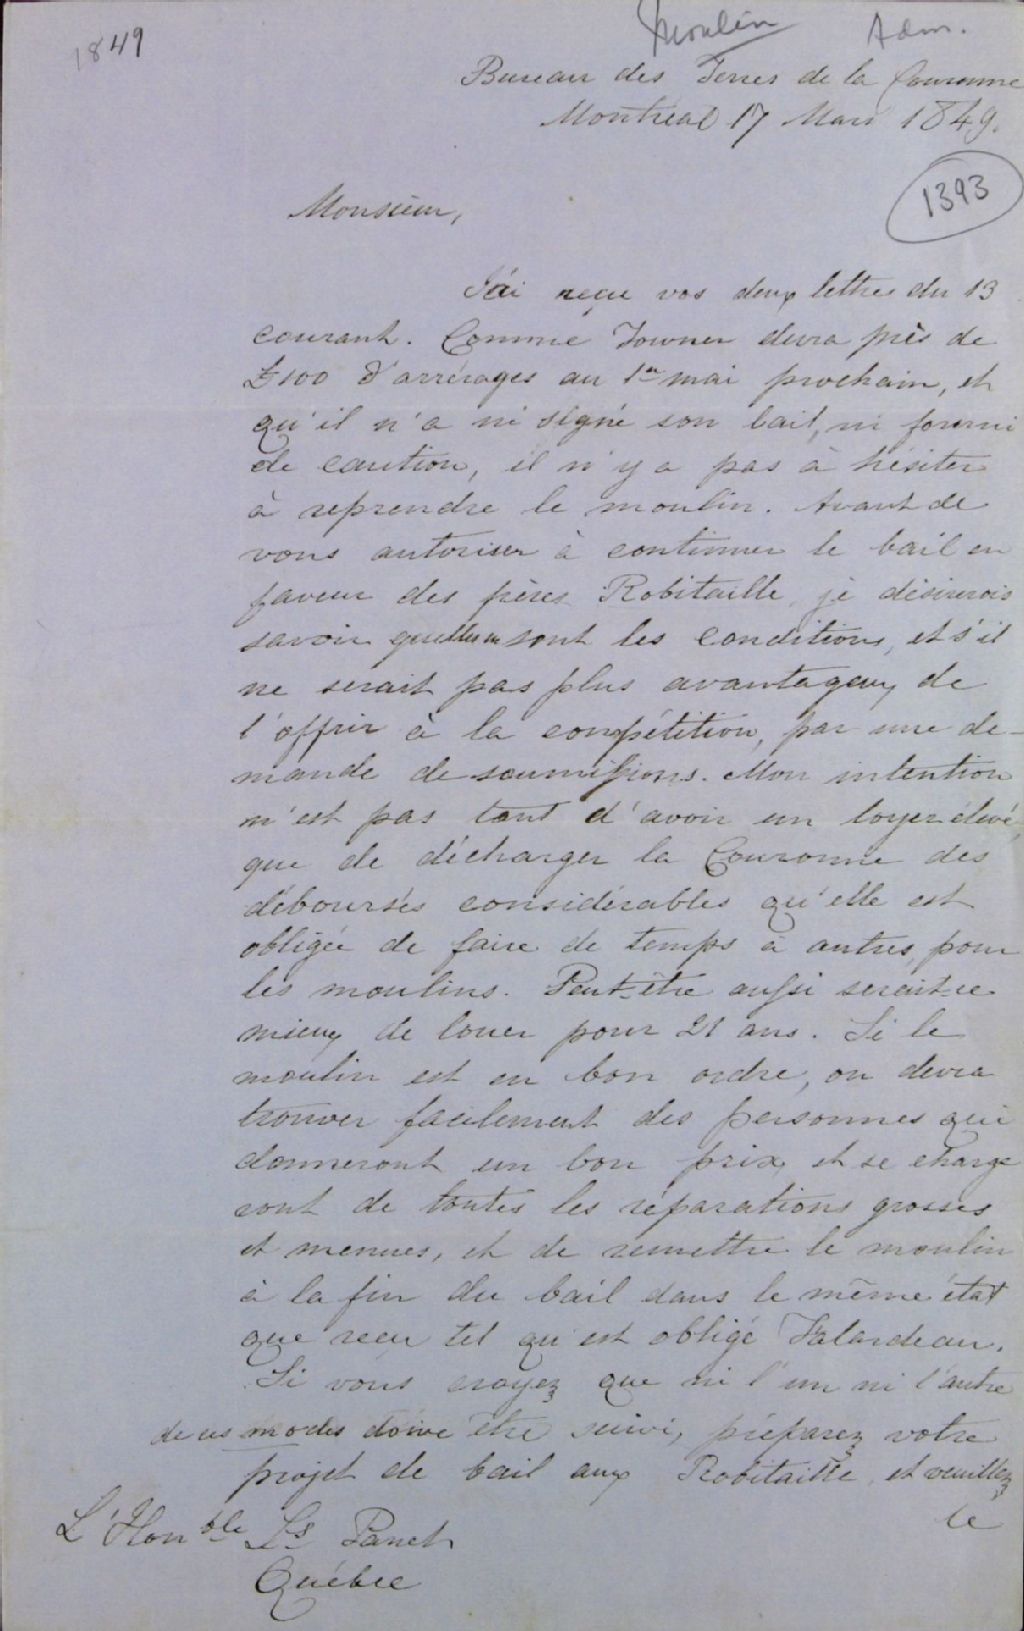 1849
Moulin Adm.
Bureau des Terres de la Couronne
Montréal 17 Mars 1849.
1393
Monsieur,
J'ai reçu vos deux lettres du 13
courant. Comme Towner devra près de
£100 d'arrérages au 1er mai prochain, et
qu'il n'a ni signé son bail, ni fourni
de caution, il n'y a pas à hésiter
à reprendre le moulin. Avant de
vous autoriser à continuer le bail en
faveur des frères Robitaille, je désirerois
savoir quelles en sont les conditions, et s'il
ne serait pas plus avantageux de
l'offrir à la compétition, par une de-
mande de soumissions. Mon intention
n'est pas tant d'avoir un loyer élevé,
que de décharger la Couronne des
déboursés considérables qu'elle est
obligée de faire de temps à autres, pour
les moulins. Peut-être aussi serait-ce
mieux de louer pour 21 ans. Si le
moulin est en bon ordre, on devra
trouver facilement des personnes qui
donneront un bon prix, et se charge
ront de toutes les réparations grosses
et menues, et de remettre le moulin
à la fin du bail dans le même état
que reçu tel qu'est obligé Falardeau.
Si vous croyez que ni l'un ni l'autre
de ces modes doive être suivi, préparez votre
projet de bail aux Robitaille, et veuillez
le
L'Honble Ls Panet
Québec